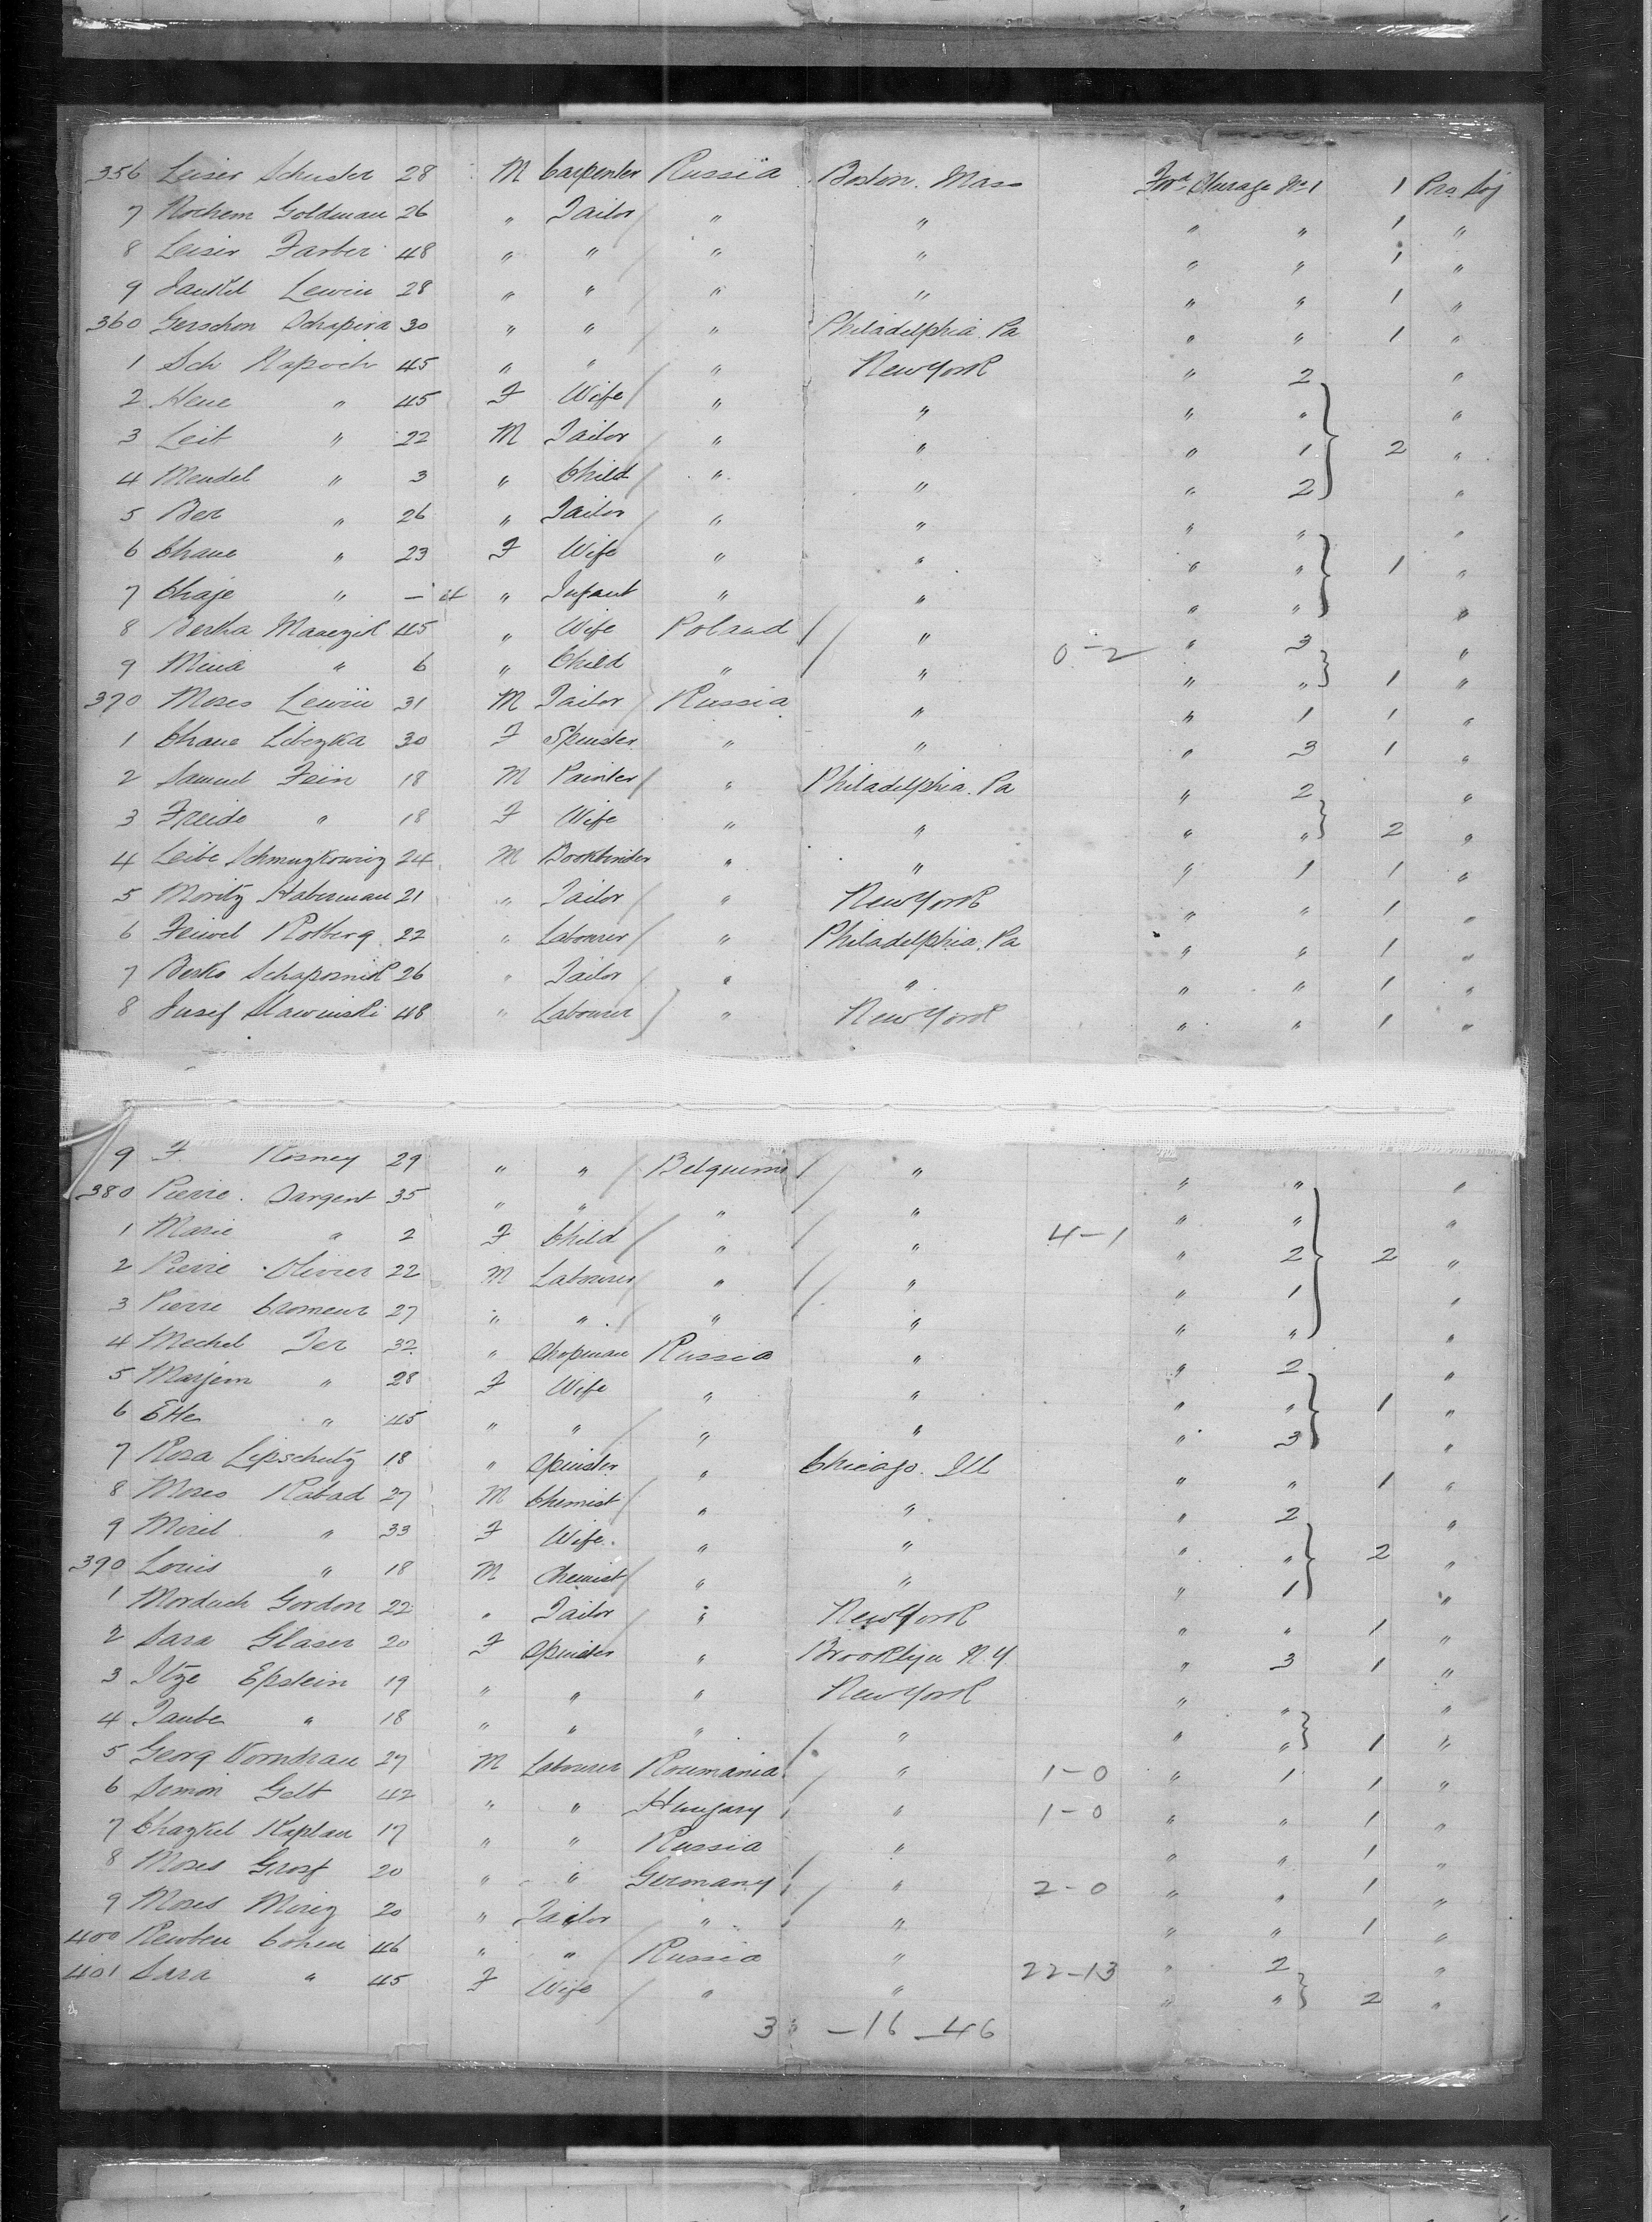 356 Leiser Schuster 28 M Carpenter Russia Boston. Mass For'd Sterage No 1 1 Pro. Soj
7 Nochem Goldman 26 " Tailor " " " " 1 "
8 Leiser Farber 48 " " " " " " 1 "
9 Jankel Lewin 28 " " " " " " 1 "
360 Gerschon Schapira 30 " " " Philadelphia. Pa " " 1 "
1 Sch Kapoch 45 " " " New York " 2 "
2 Hene " 45 F Wife " " " " "
3 Leib " 22 M Tailor " " " 1 2 "
4 Mendel " 3 " Child " " " 2 "
5 Ber " 26 " Tailor " " " " "
6 Chane " 23 F Wife " " " " 1 "
7 Chaje " - 4 " Infant " " " " "
8 Bertha 45 " Wife Poland " 0-2 " 3 "
9 Mina " 6 " Child " " " " 1 "
370 Moses Lewin 31 M Tailor Russia " " 1 1 "
1 Chane Libezka 30 F Spinster " " " 3 1 "
2 Samuel Fein 18 M Painter " Philadelphia. Pa " 2 "
3 Freide " 18 F Wife " " " " 2 "
4 Leibe 24 M Bookbinder " " " 1 1 "
5 Moritz Haberman 21 " Tailor " New York " " 1 "
6 Feiwel Rotberg 22 " Labourer " Philadelphia. Pa " " 1 "
7 Berko Schaposnik 26 " Tailor " " " " 1 "
8 Jusef Slawinski 48 " Labourer " New York " " 1 "
9 F. Rosney 29 " " Belguim " " " "
380 Pierre Sargent 35 " " " " " " "
1 Marie " 2 F Child " " 4-1 " 2 2 "
2 Pierre Olivier 22 M Labourer " " " 1 "
3 Pierre Cromeur 27 " " " " " " "
4 Mechel Ter 32 " Shopman Russia " " 2 "
5 Marjem " 28 F Wife " " " " 1 "
6 Ette " 45 " " " " " 3 "
7 Rosa Lipschutz 18 " Spinster " Chicago. Ill " " 1 "
8 Moses Rabad 27 M Chemist " " " 2 "
9 " 33 F Wife " " " " 2 "
390 Louis " 18 M Chemist " " " 1 "
1 Morduch Gordon 22 " Tailor " New York " " 1 "
2 Sara Glaser 20 F Spinster " Brooklyn N.Y. " 3 1 "
3 Itze Epstein 19 " " " New York " " "
4 Taube " 18 " " " " " " 1 "
5 Georg Vorndrau 27 M Labourer Roumania " 1-0 " 1 1 "
6 Semon Gelb 42 " " Hungary " 1-0 " " 1 "
7 Chazkel Kaplan 17 " " Russia " " " 1 "
8 Moses Grosz 20 " " Germany " 2-0 " " 1 "
9 Moses 20 " Tailor " " " " 1 "
400 Rewben Cohen 46 " " Russia " 22-13 " 2 "
401 Sara " 45 F Wife " " " " 2 "
3 -16-46